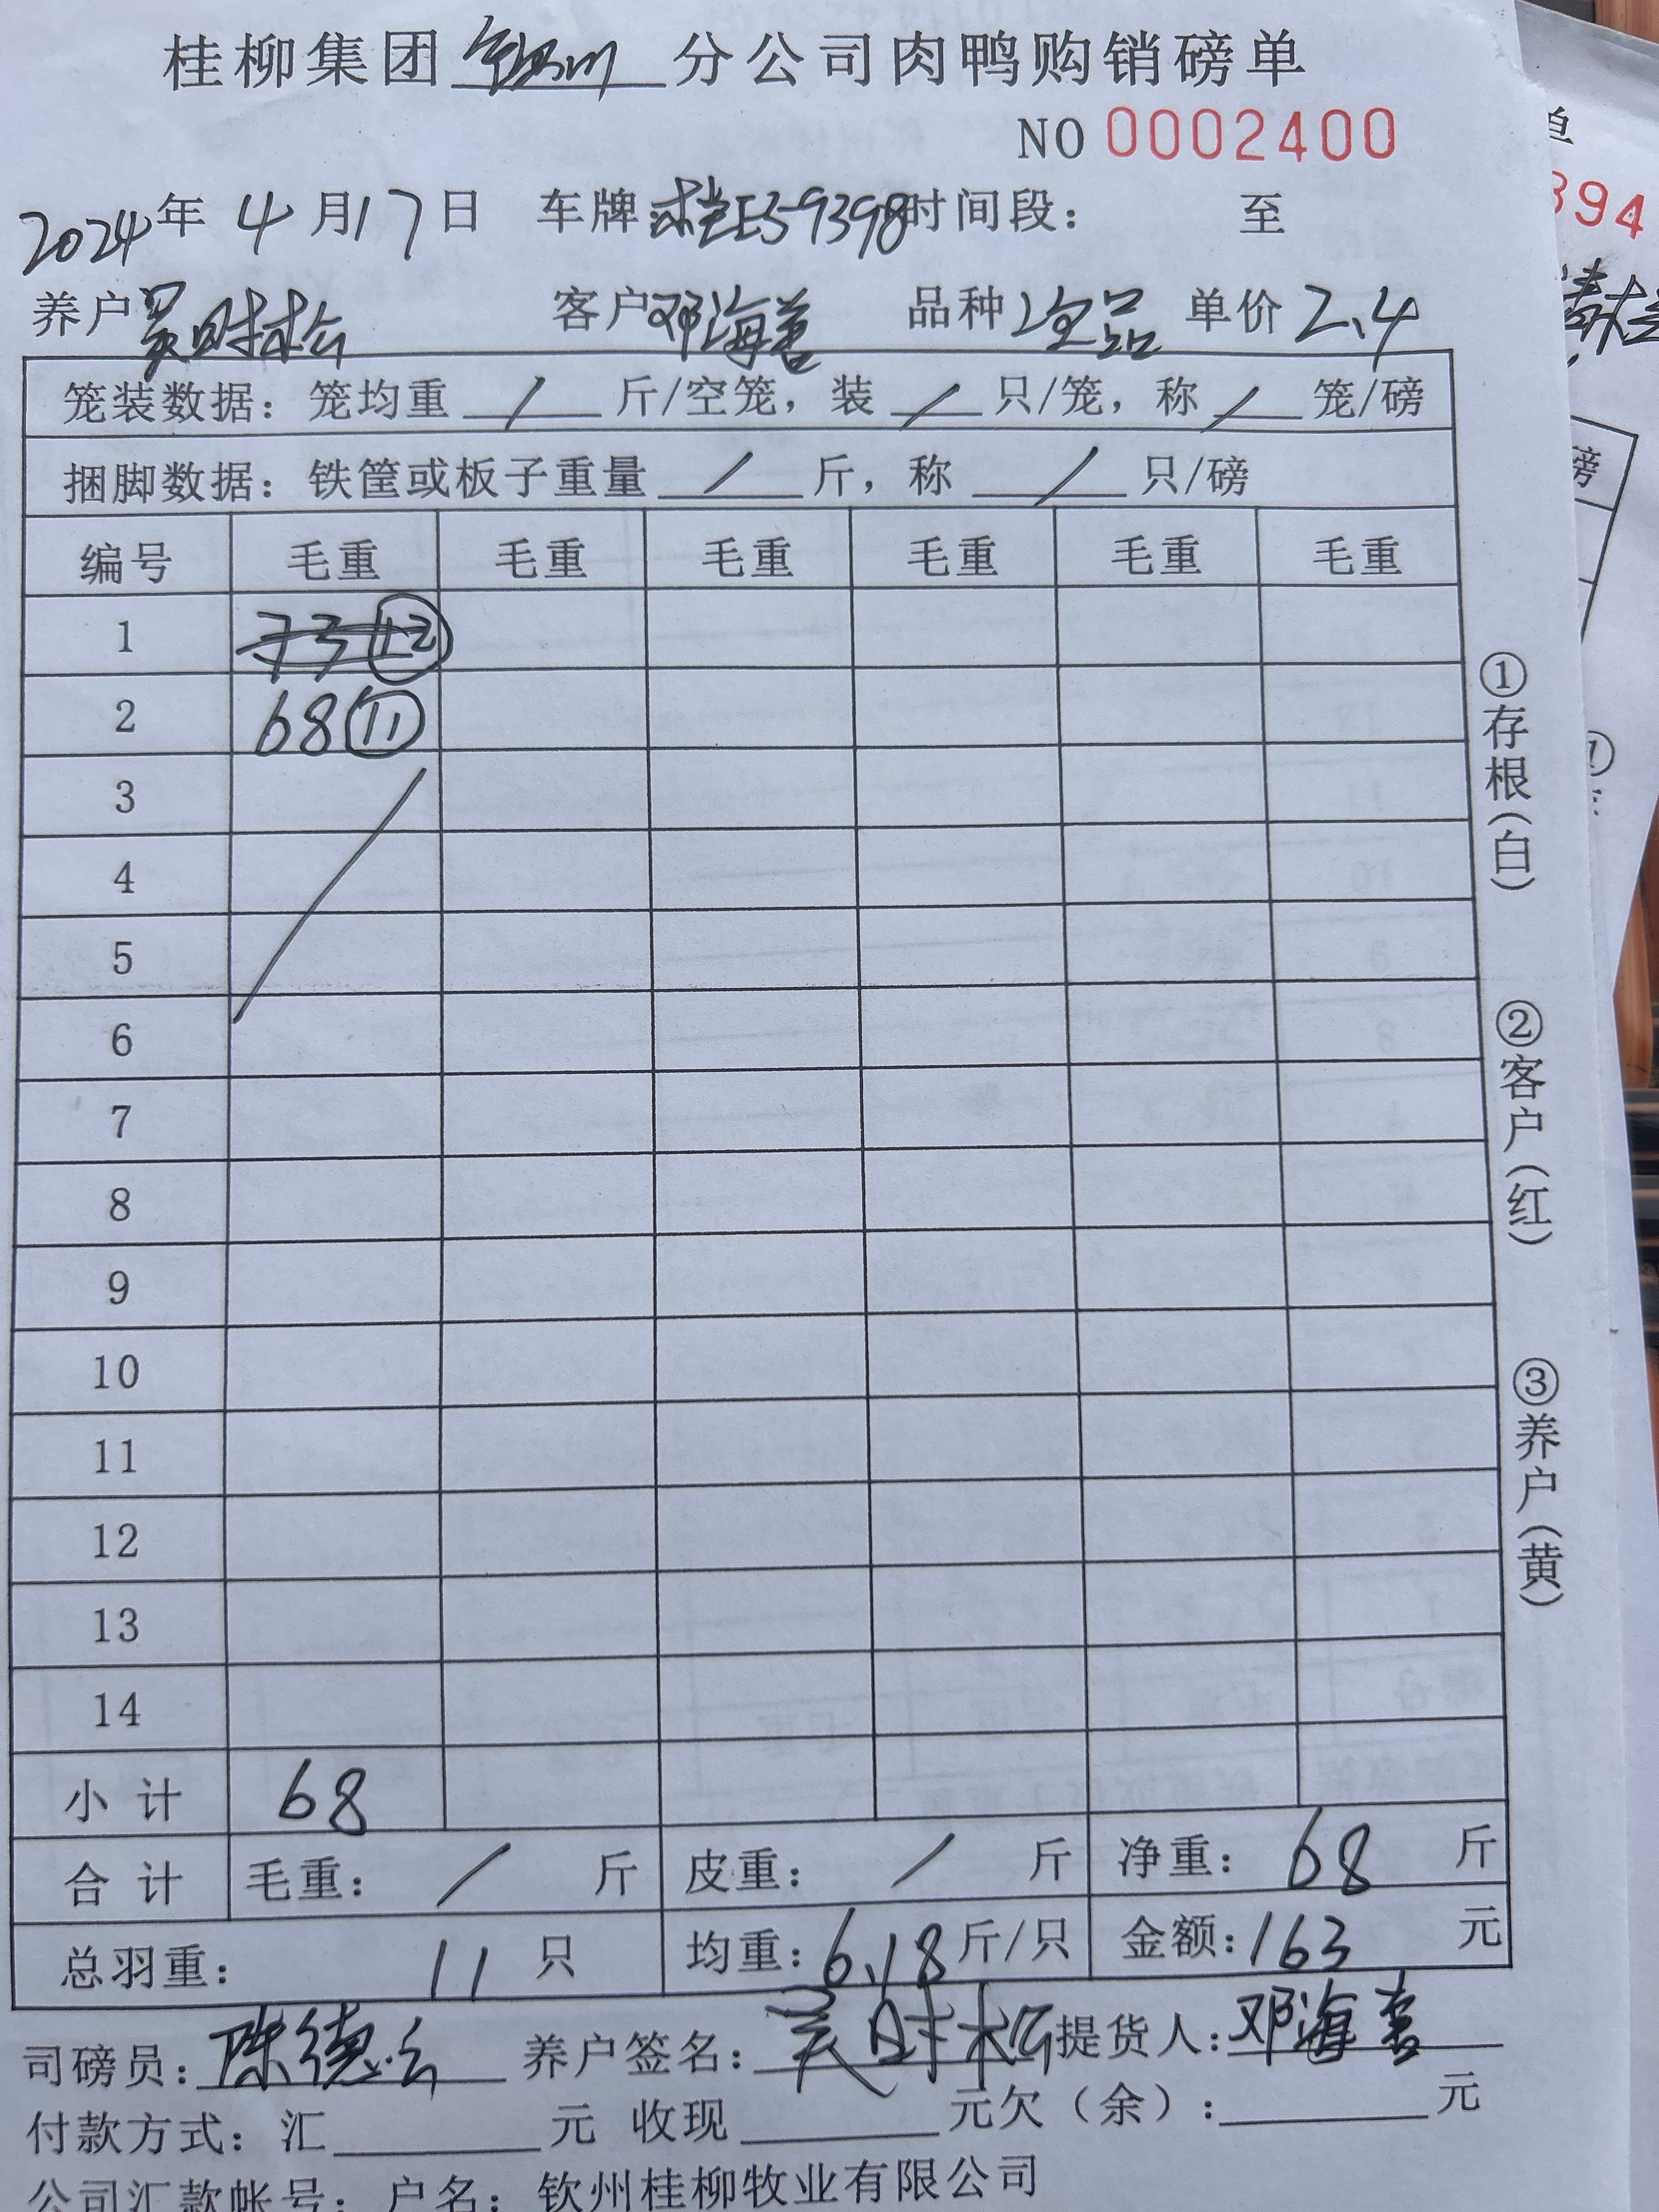 桂柳集团 钦州 分公司肉鸭购销磅单
NO 0002400
2024年 4月17日 车牌 桂E59398 时间段： 至
养户 吴时松 客户 邓海善 品种 次品 单价 2.4
笼装数据：笼均重 / 斤/空笼，装 / 只/笼，称 / 笼/磅
捆脚数据：铁筐或板子重量 / 斤，称 / 只/磅
编号 毛重 毛重 毛重 毛重 毛重 毛重
1 73 12
2 68 11
3
4
5
6
7
8
9
10
11
12
13
14
小计 68
合计 毛重： / 斤 皮重： / 斤 净重： 68 斤
总羽重： 11 只 均重：6.18斤/只 金额：163 元
司磅员：陈德 养户签名：吴时松 提货人：邓海善
付款方式：汇 元 收现 元欠（余）： 元
公司汇款帐号：户名：钦州桂柳牧业有限公司
①存根（白）
②客户（红）
③养户（黄）
394
磅